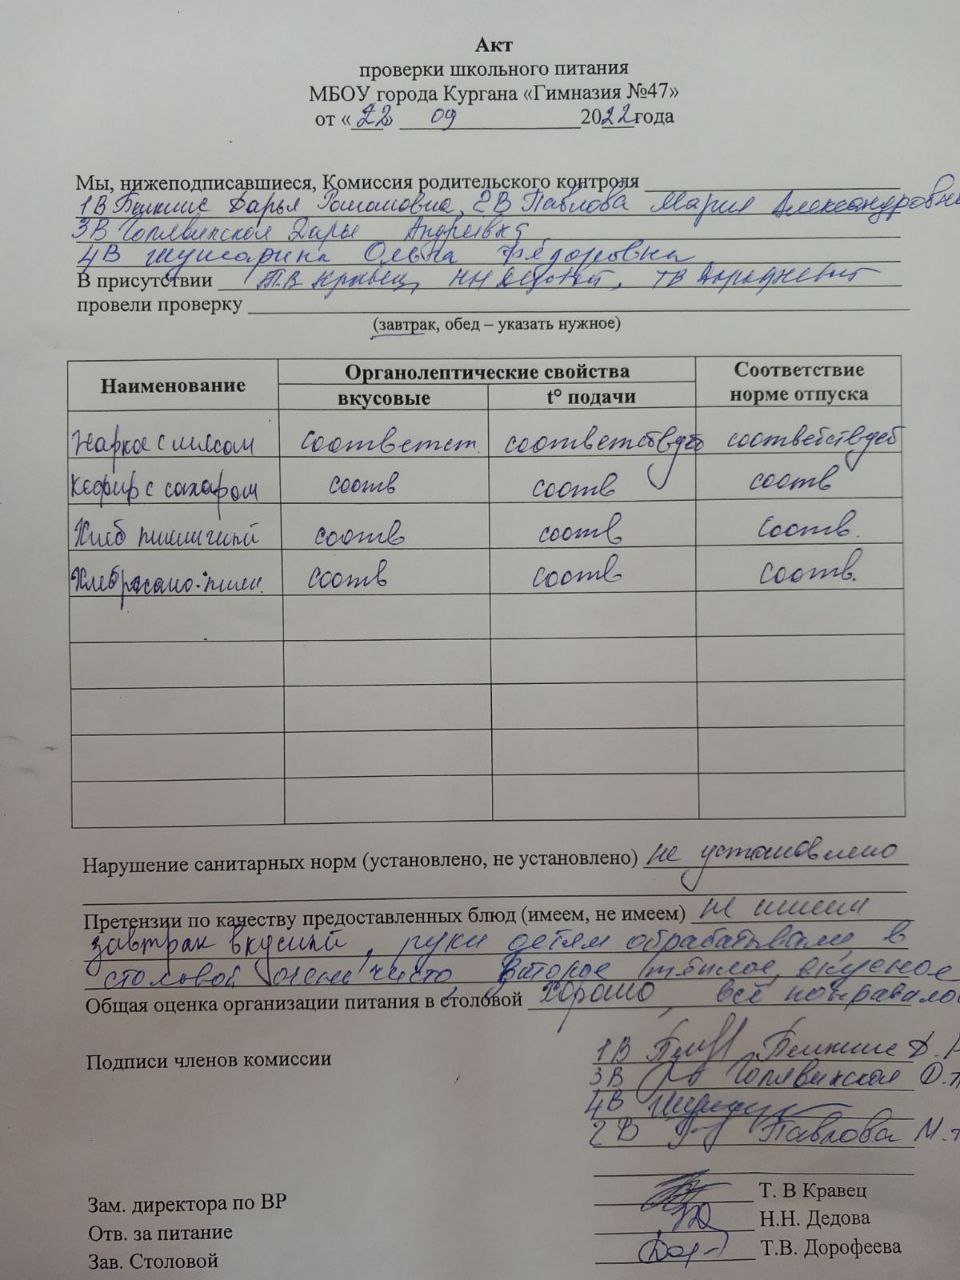 Акт
проверки школьного питания
МБОУ города Кургана «Гимназия №47»
от «22» 09 2022года
Мы, нижеподписавшиеся, Комиссия родительского контроля
1В Дарья Романовна, 2В Павлова Мария Александровна
3В Дарья Андреевна
4В Ольга Фёдоровна
В присутствии Т.В Кравец, НН Т В
провели проверку
(завтрак, обед – указать нужное)
Наименование Органолептические свойства Соответствие
вкусовые t° подачи норме отпуска
Жаркое с мясом соответст. соответствует соответствует
Кефир с сахаром соотв соотв соотв
Хлеб пшеничный соотв соотв соотв.
Хлеб ржано-пшен. соотв соотв соотв.
Нарушение санитарных норм (установлено, не установлено) не установлено
Претензии по качеству предоставленных блюд (имеем, не имеем) не имеем
завтрак вкусный, руки детям обрабатывали в
столовой очень чисто, второе тёплое, вкусное
Общая оценка организации питания в столовой Хорошо, всё понравило
Подписи членов комиссии
1В Д.
3В Д.
4В
2В Павлова М.
Зам. директора по ВР Т. В Кравец
Отв. за питание Н.Н. Дедова
Зав. Столовой Т.В. Дорофеева